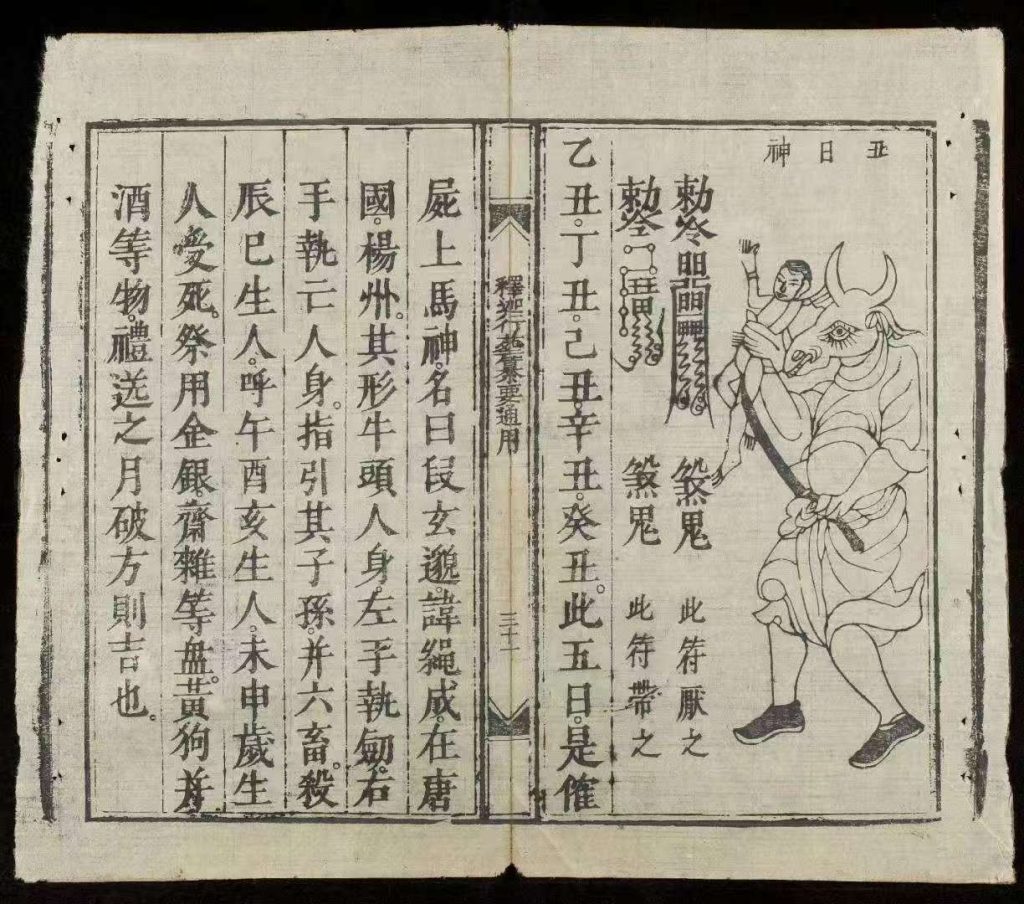 丑日神
勅令 煞鬼 此符厭之
勅令 煞鬼 此符帶之
乙丑。丁丑。己丑。辛丑。癸丑。此五日。是傕
釋迦行纂要通用 三十一
屍上馬神。名曰段玄邈諱繩成。在唐
國。楊州。其形牛頭人身。左手執劒。右
手執亡人身。指引其子孫。并六畜。殺
辰巳生人。呼午酉亥生人。未申歲生
人受死。祭用金銀。齋雜等盘。黃狗并
酒等物。禮送之月破方則吉也。